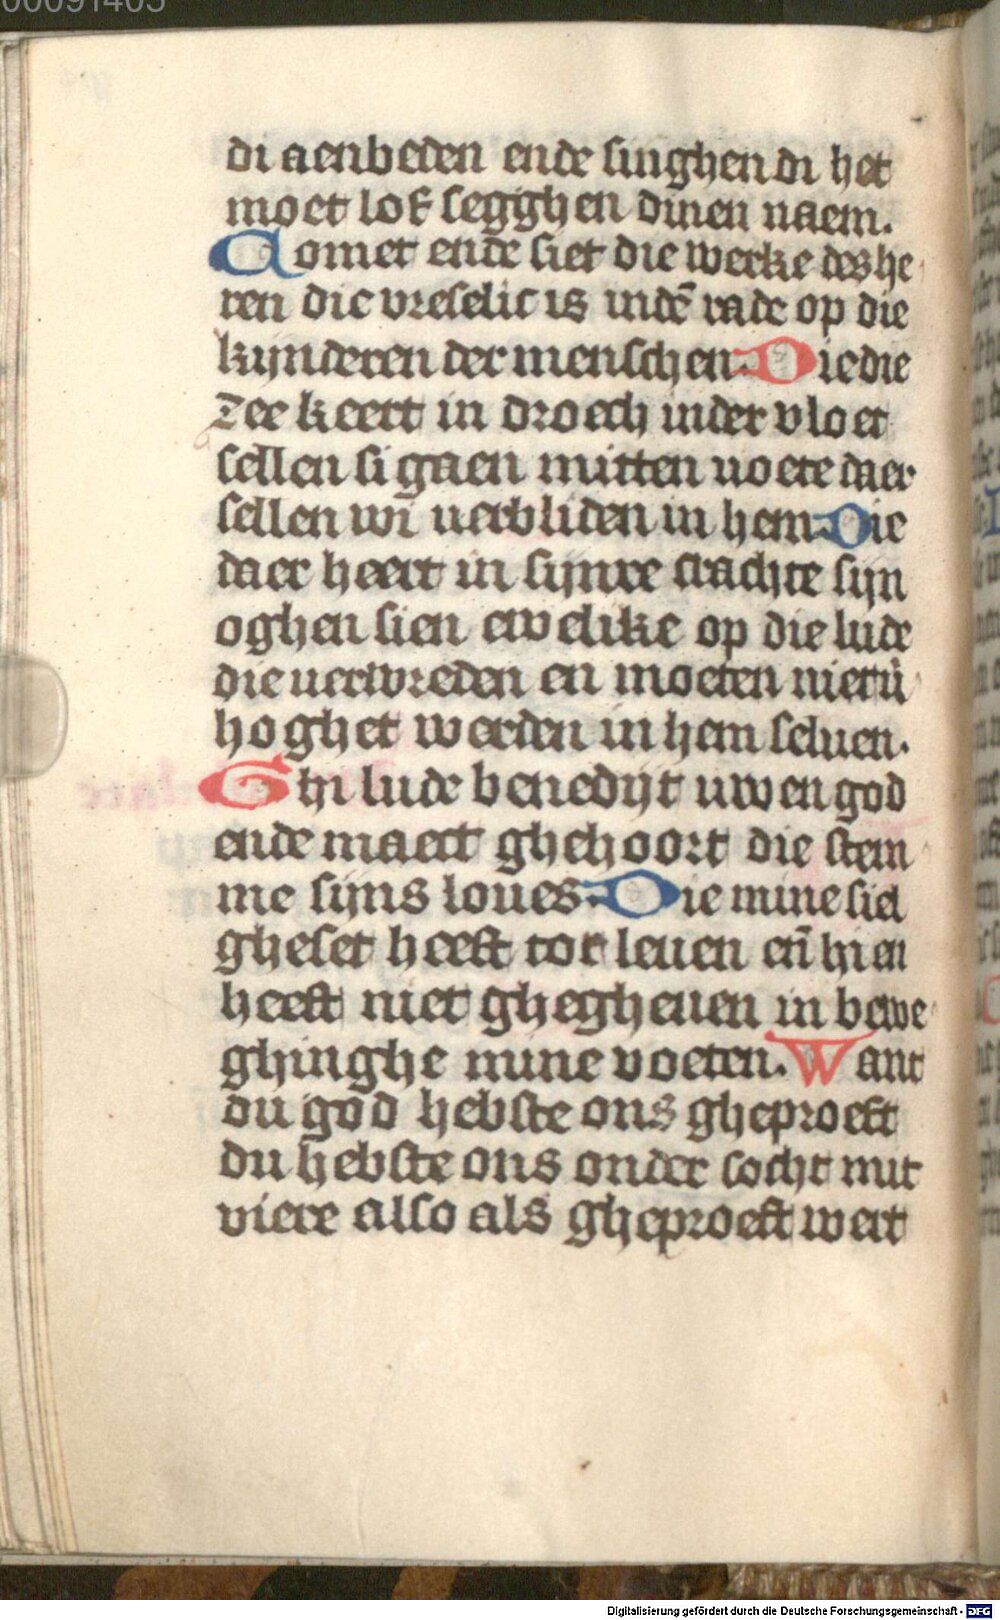 00091405
di aenbeden ende singhen di het
moet lof segghen dinen naem.
Comet ende siet die werke des he
ren die vreselic is indē rade op die
kijnderen der menschen. Die die
zee keert in droech inder vloet
sellen si gaen mitten uoete daer
sellen wi uerbliden in hem. Die
daer heert in sijnre crachte sijn
oghen sien ewelike op die lude
die uerwreden en moeten niet ū
hoghet werden in hem seluen.
Ghi lude benedijt uwen god
ende maect ghehoort die stem
me sijns loues. Die mine siel
gheset heeft tot leuen en̄ hi en
heeft niet ghegheuen in bewe
ghinghe mine voeten. Want
du god hebste ons gheproeft
du hebste ons onder socht mit
viere also als gheproeft wert
Digitalisierung gefördert durch die Deutsche Forschungsgemeinschaft - DFG